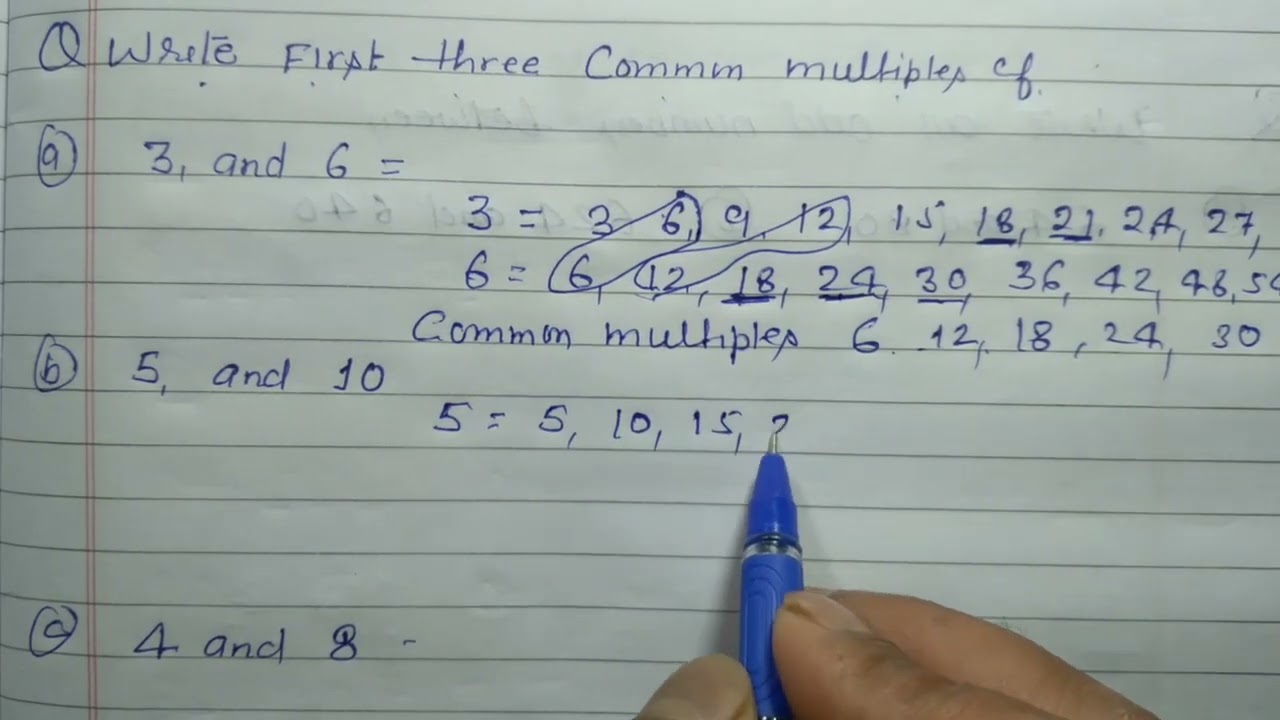 Q Write First three Commn multiples of.
(a) 3, and 6 =
3 = 3 6, 9, 12, 15, 18, 21, 24, 27,
6 = 6, 12, 18, 24, 30, 36, 42, 48, 54
Common multiples 6. 12, 18, 24, 30
(b) 5, and 10
5 = 5, 10, 15, 2
(c) 4 and 8 -